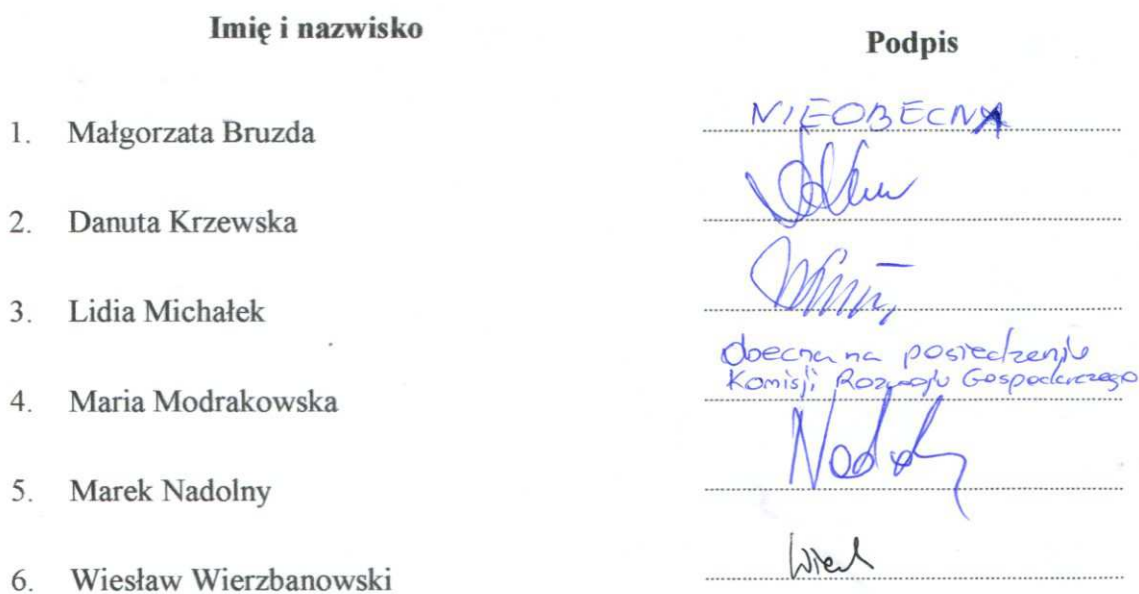 Imię i nazwisko
Podpis
1. Małgorzata Bruzda
NIEOBECNA
2. Danuta Krzewska
3. Lidia Michałek
4. Maria Modrakowska
obecna na posiedzeniu
Komisji Rozwoju Gospodarczego
5. Marek Nadolny
6. Wiesław Wierzbanowski